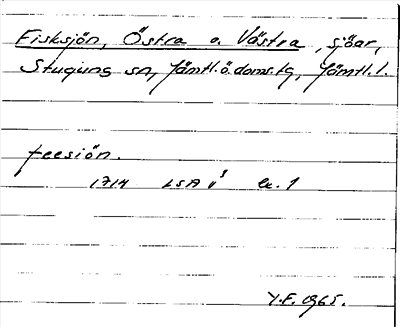 Fisksjön, Östra o. Västra, sjöar,
Stuguns sn, Jämtl.ö.doms.lg, Jämtl.l.
feesiön.
1714 LSA V³ Nr. 1
Y.F. 1965.